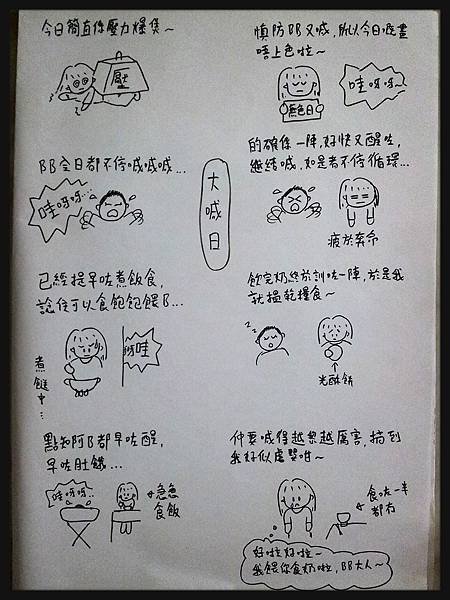 大喊日
今日簡直係壓力爆煲~
壓
BB全日都不停喊喊喊...
哇呀呀...
已經提早咗煮飯食,
諗住可以食飽飽餵B...
煮餸中...
呀哇
點知阿B都早咗醒,
早咗肚餓...
哇呀呀..
急急
食飯
慎防BB又喊,所以今日呢畫
唔上色啦~
無色日
哇呀呀~
的確係一陣,好快又醒咗,
繼續喊.如是者不停循環...
疲於奔命
飲完奶終於訓咗一陣,於是我
就搵乾糧食~
zzz
光酥餅
仲要喊得越黎越厲害,搞到
我好似虐嬰咁~
食咗一半
都冇
好啦好啦~
我餵你食奶啦,BB大人~